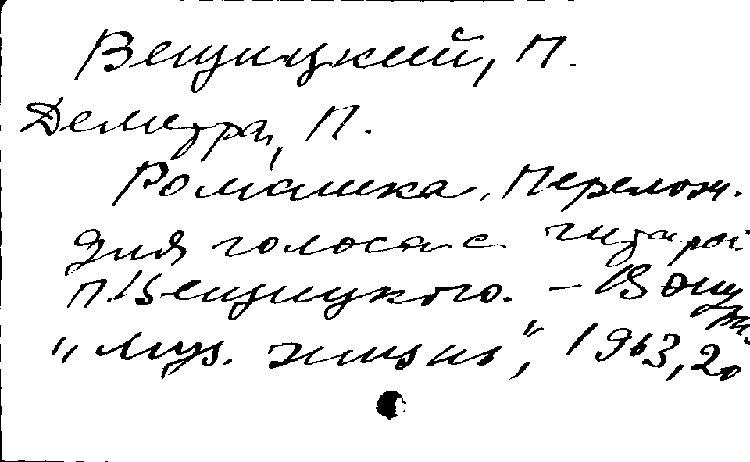 Вещицкий, П.
Деметра, П.
Ромашка. Перелож.
для голоса с гитарой
П. Вещицкого. – В
"Муз. жизнь", 1963, 20